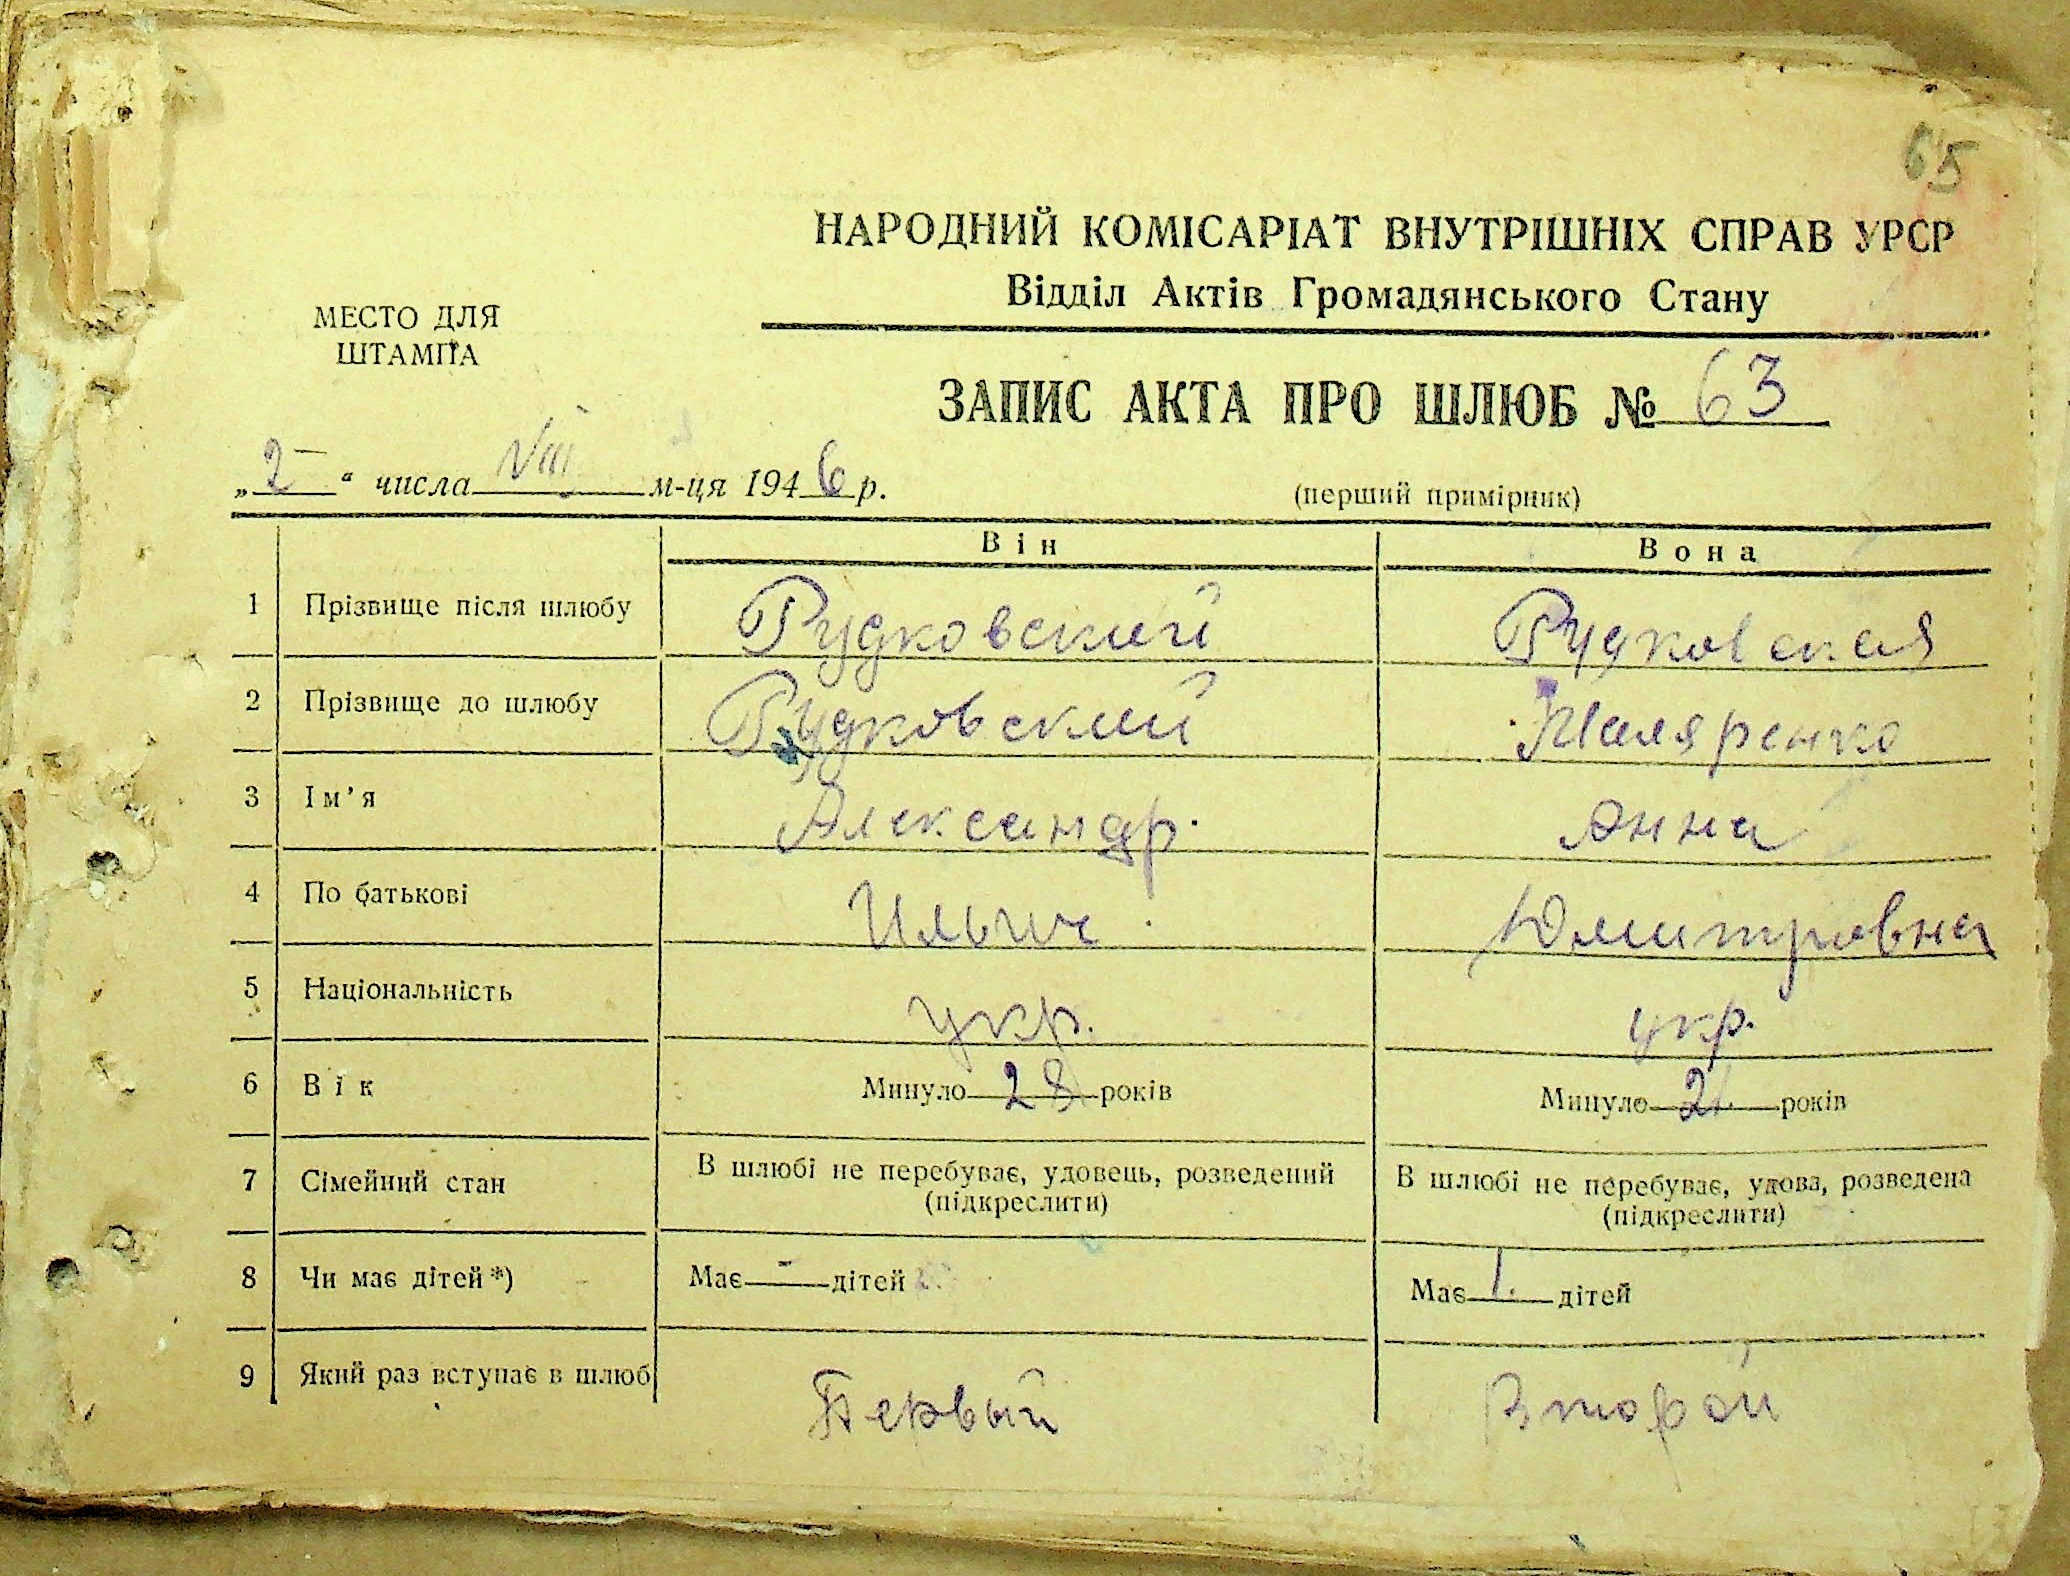 65
НАРОДНИЙ КОМІСАРІАТ ВНУТРІШНІХ СПРАВ УРСР
Відділ Актів Громадянського Стану
МЕСТО ДЛЯ
ШТАМПА
ЗАПИС АКТА ПРО ШЛЮБ № 63
„2“ числа VIII м-ця 1946 р.
(перший примірник)
Він Вона
1 Прізвище після шлюбу Рудковский Рудковская
2 Прізвище до шлюбу Рудковский
3 Ім’я Александр. Анна
4 По батькові Ильич Дмитровна
5 Національність укр. укр.
6 Вік Минуло 28 років Минуло 21. років
7 Сімейний стан В шлюбі не перебуває, удовець, розведений (підкреслити) В шлюбі не перебуває, удова, розведена (підкреслити)
8 Чи має дітей*) Має - дітей Має 1. дітей
9 Який раз вступає в шлюб Первый Второй